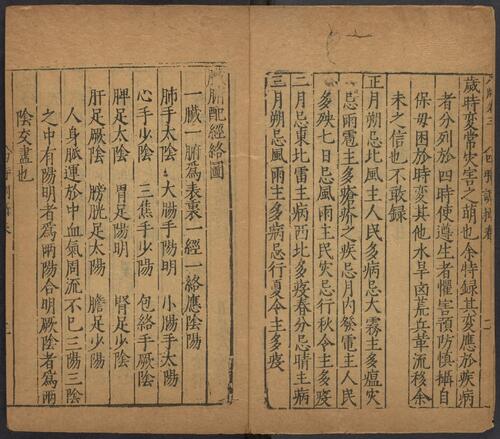 歲時變常灾害之萌也余特録其變應於疾病
者分列於四時使遵生者懼害預防慎攝自
保毋困於時變其他水旱凶荒兵革流移余
未之信也不敢録
正月朔忌北風主人民多病忌大霧主多瘟灾
忌雨雹主多瘡疥之疾忌月内發電主人民
多殃七日忌風雨主民灾忌行秋令主多疫
二月忌東北雷主病西北多疫春分忌晴主病
三月朔忌風雨主多病忌行夏令主多疫
臟腑配經絡圖
一臟一腑爲表裏一經一絡應陰陽
肺手太陰 大腸手陽明 小腸手太陽
心手少陰 三焦手少陽 包絡手厥陰
脾足太陰 胃足陽明 腎足少陰
肝足厥陰 膀胱足太陽 膽足少陽
人身脈運於中血氣周流不已三陽三陰
之中有陽明者爲兩陽合明厥陰者爲兩
陰交盡也